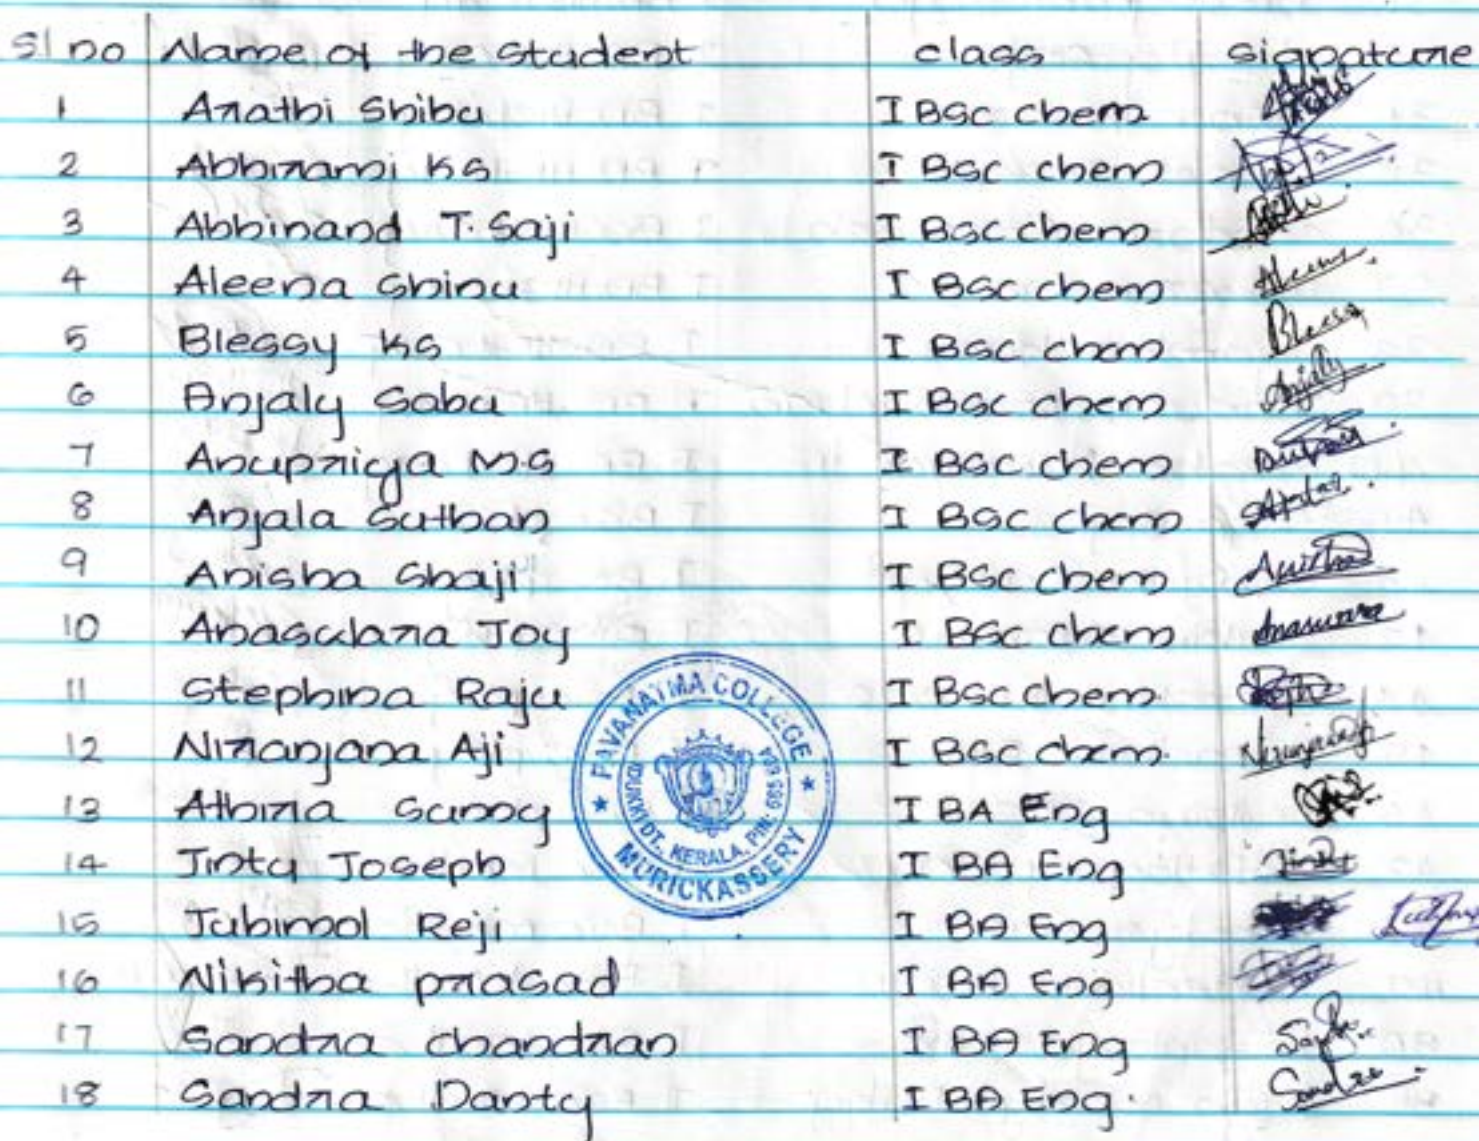 Sl no Name of the Student class signature
1 Arathi Shibu I BSc chem
2 Abhirami KS I BSc chem
3 Abhinand T. Saji I BSc chem
4 Aleena Shinu I BSc chem Aleena
5 Blessy KS I BSc chem Blessy
6 Anjaly Sabu I BSc chem Anjaly
7 Anupriya M.S I BSc chem
8 Anjala Suthan I BSc chem
9 Anisha Shaji I BSc chem Anisha
10 Anaswara Joy I BSc chem Anaswara
11 Stephina Raju I BSc chem
12 Niranjana Aji I BSc chem.
13 Athira Sunny I BA Eng
14 Jinty Joseph I BA Eng
15 Jubimol Reji I BA Eng
16 Nikitha prasad I BA Eng
17 Sandra chandran I BA Eng
18 Sandra Danty I BA Eng. Sandra
PAVANATMA COLLEGE
IDUKKI DT., KERALA, PIN: 685 604
MURICKASSERY